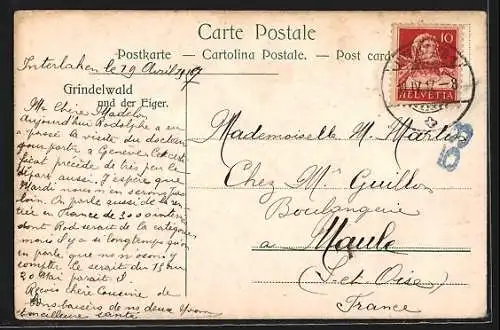 Carte Postale
Postkarte — Cartolina Postale. — Post card
Interlaken le 19 Avril 1917
Grindelwald
und der Eiger.
Ma Chère Madelon
Aujourd'hui Rodolphe a
passé la visite du docteur
pour partir a Geneve
précède de très peu le
départ aussi. J'espère que
Mardi nous en serons
loin. On parle aussi de la
trée en France de 300
dont Rod serait de la categorie
mais il y a si longtemps qu'on
en parle que nous n'osons y
compter. Ce serait du 15 au
20 Mai parait il
Reçois chère Cousine de
bons baisers de nos deux
meilleure santé
10
HELVETIA
Mademoiselle M. Martin
Chez Mr Guillon
Boulangerie
a Maule
(S. et Oise)
France